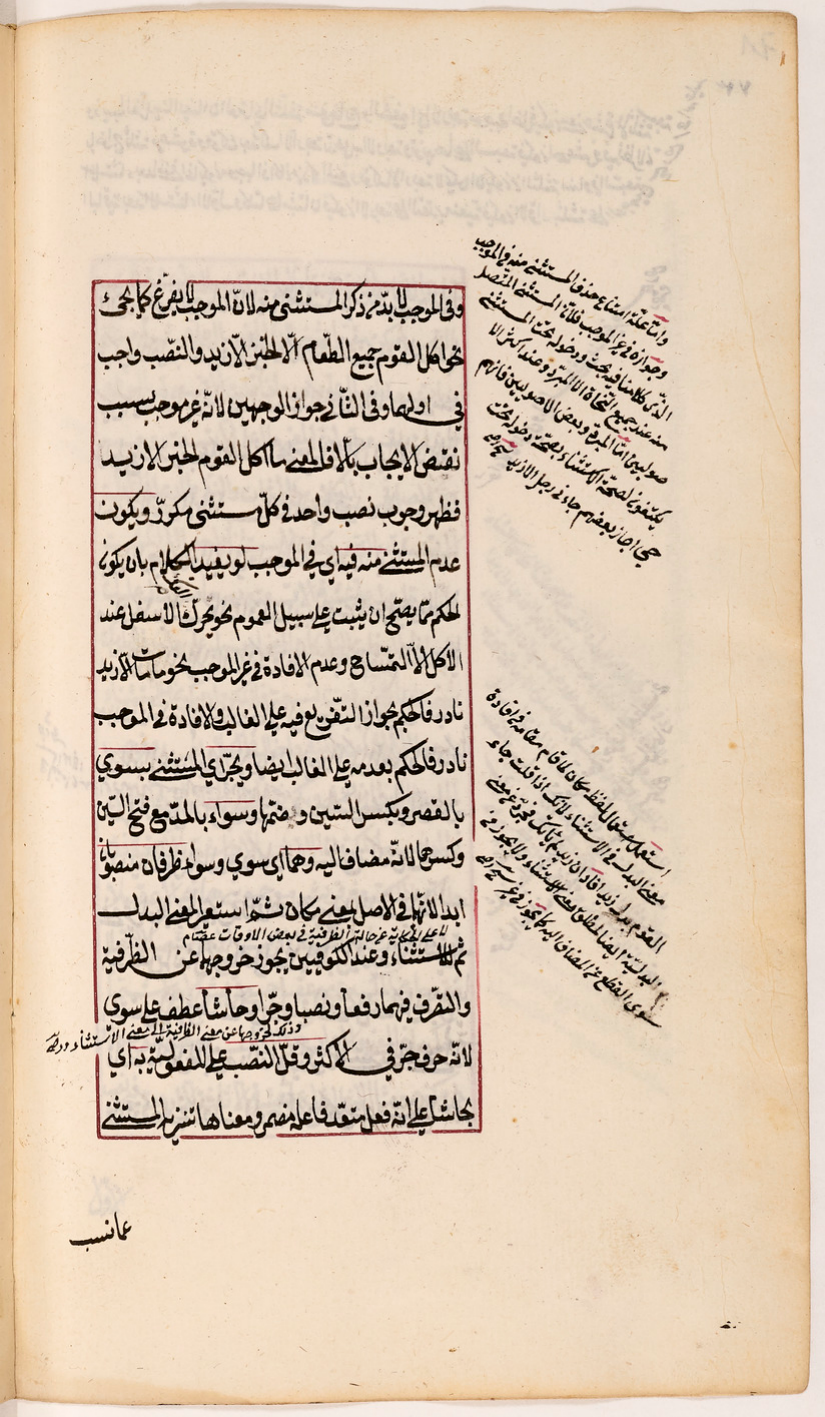 وفي الموجب لا بدّ من ذكر المستثنى منه لانّ الموجب لا يفرّغ كما يجئ
نحو اكل القوم جميع الطّعام الّا الخبز الّا زيد والنّصب واجب
في اولهما وفي الثّاني جواز الوجهين لانّه غير موجب بسبب
نقض الايجاب بالّا فالمعنى ما اكل القوم الخبز الا زيد
فظهر وجوب نصب واحد في كلّ مستثنى مكرّر ويكون
عدم المستثنى منه فيه اي في الموجب لو يفيد الكلام بان يكون
الحكم ممّا يصحّ ان يثبت على سبيل العموم نحو يحرّك الاسفل عند
الاكل الّا التمساح وعدم الافادة في غير الموجب نحو ما مات الّا زيد
نادر فالحكم بجواز التفريع فيه على الغالب والافادة في الموجب
نادر فالحكم بعدمه على الغالب ايضا ويجرّ اي المستثنى بسوي
بالقصر وبكسر السّين وضمّها وسواء بالمدّ مع فتح السّين
وكسرها لانّه مضاف اليه وهما اي سوي وسواء ظرفان منصوبان
ابدا لانّهما في الاصل بمعنى مكان ثمّ استعير المعنى البدل
لا على الحكاية عن حالة الظرفية في بعض الاوقات عصام
ثم للاستثناء وعند الكوفيين يجوز خروجهما عن الظّرفية
والتصّرف فيهما رفعا ونصبا وجّرا وحاشا عطف على سوي
وذلك لخروجها عن معنى الظرفية الى معنى الاستثناء
لانّه حرف جرّ في الاكثر وقلّ النصب على المفعوليّة به اي
بحاشا على انّه فعل متعّد فاعله مضمر ومعناها تنزيه المستثنى
عمانسب
وامّا علة امتناع حذف المستثنى منه في الموجب
وجوازه في غير الموجب فلانّ المستثنى المتّصل
الذّي كلامنا فيه يجب دخوله تحت المستثنى
منه عند جميع النحاة الا المبرد وعند اكثر الا
صوليين امّا المبرد وبعض الاصوليين فانّهم
يكتفون لصحّة الاستثناء بصحّة دخوله تحت
حتى اجاز بعضهم جاءني رجل الا زيد
استعمل لفظ مكان لما قام مقامه في افادة
معنى البدل في الاستثناء لانّك اذا قلت جاء
القوم بدل زيد افاد ان زيدا لم ياتك فجرّد عن معنى
البدليّة ايضا لمطلق معنى الاستثناء ولا يجوز في
سوى القطع عن المضاف اليه كما يجوز في غير